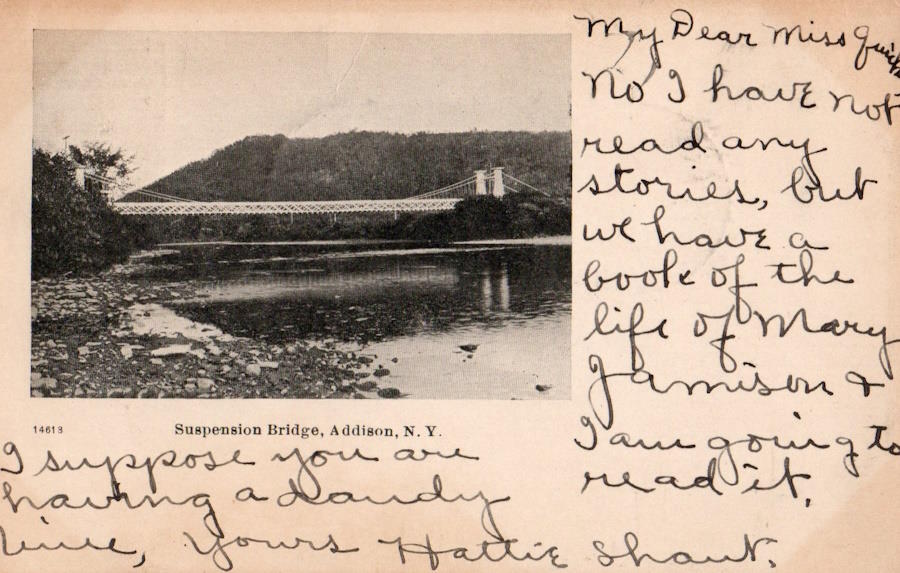 My Dear Miss
No I have not
read any
stories, but
we have a
book of the
life of Mary
Jamison &
I am going to
read it.
14613
Suspension Bridge, Addison, N. Y.
I suppose you are
having a dandy
time, Yours Hattie Shaut.